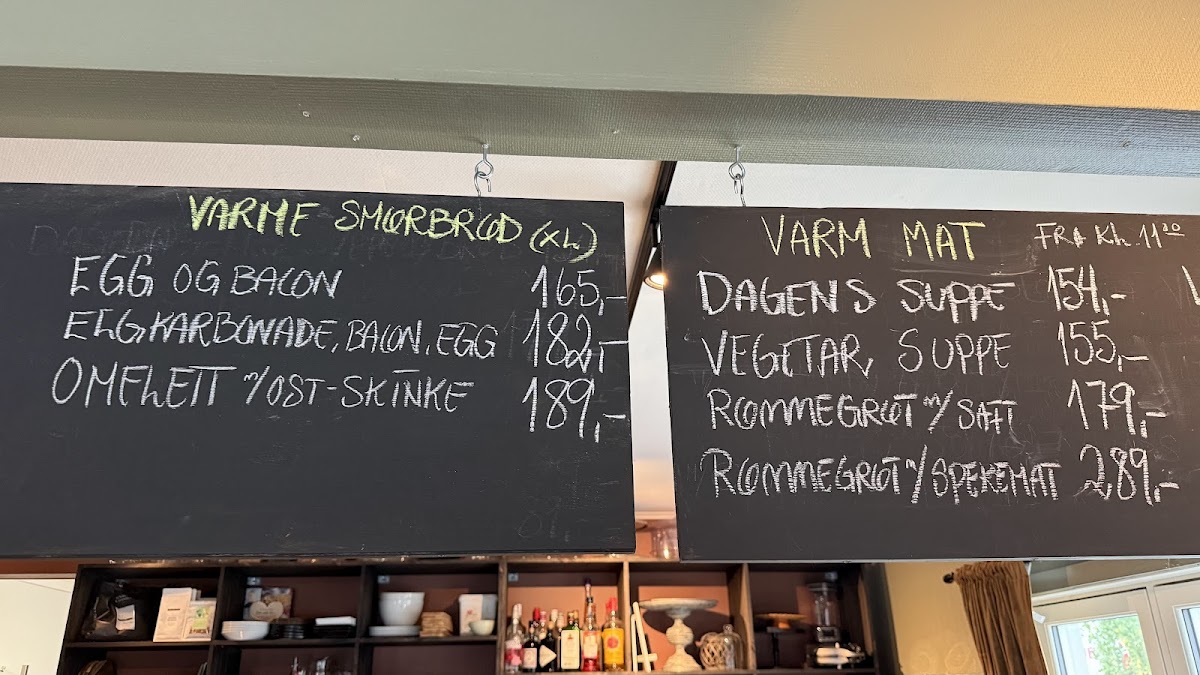 VARME SMØRBRØD (XL)
EGG OG BACON 165,-
ELGKARBONADE, BACON, EGG 182,-
OMELETT m/OST-SKINKE 189,-
VARM MAT FRA Kl. 11⁰⁰
DAGENS SUPPE 154,-
VEGETAR, SUPPE 155,-
RØMMEGRØT m/SAFT 179,-
RØMMEGRØT m/SPEKEMAT 289,-